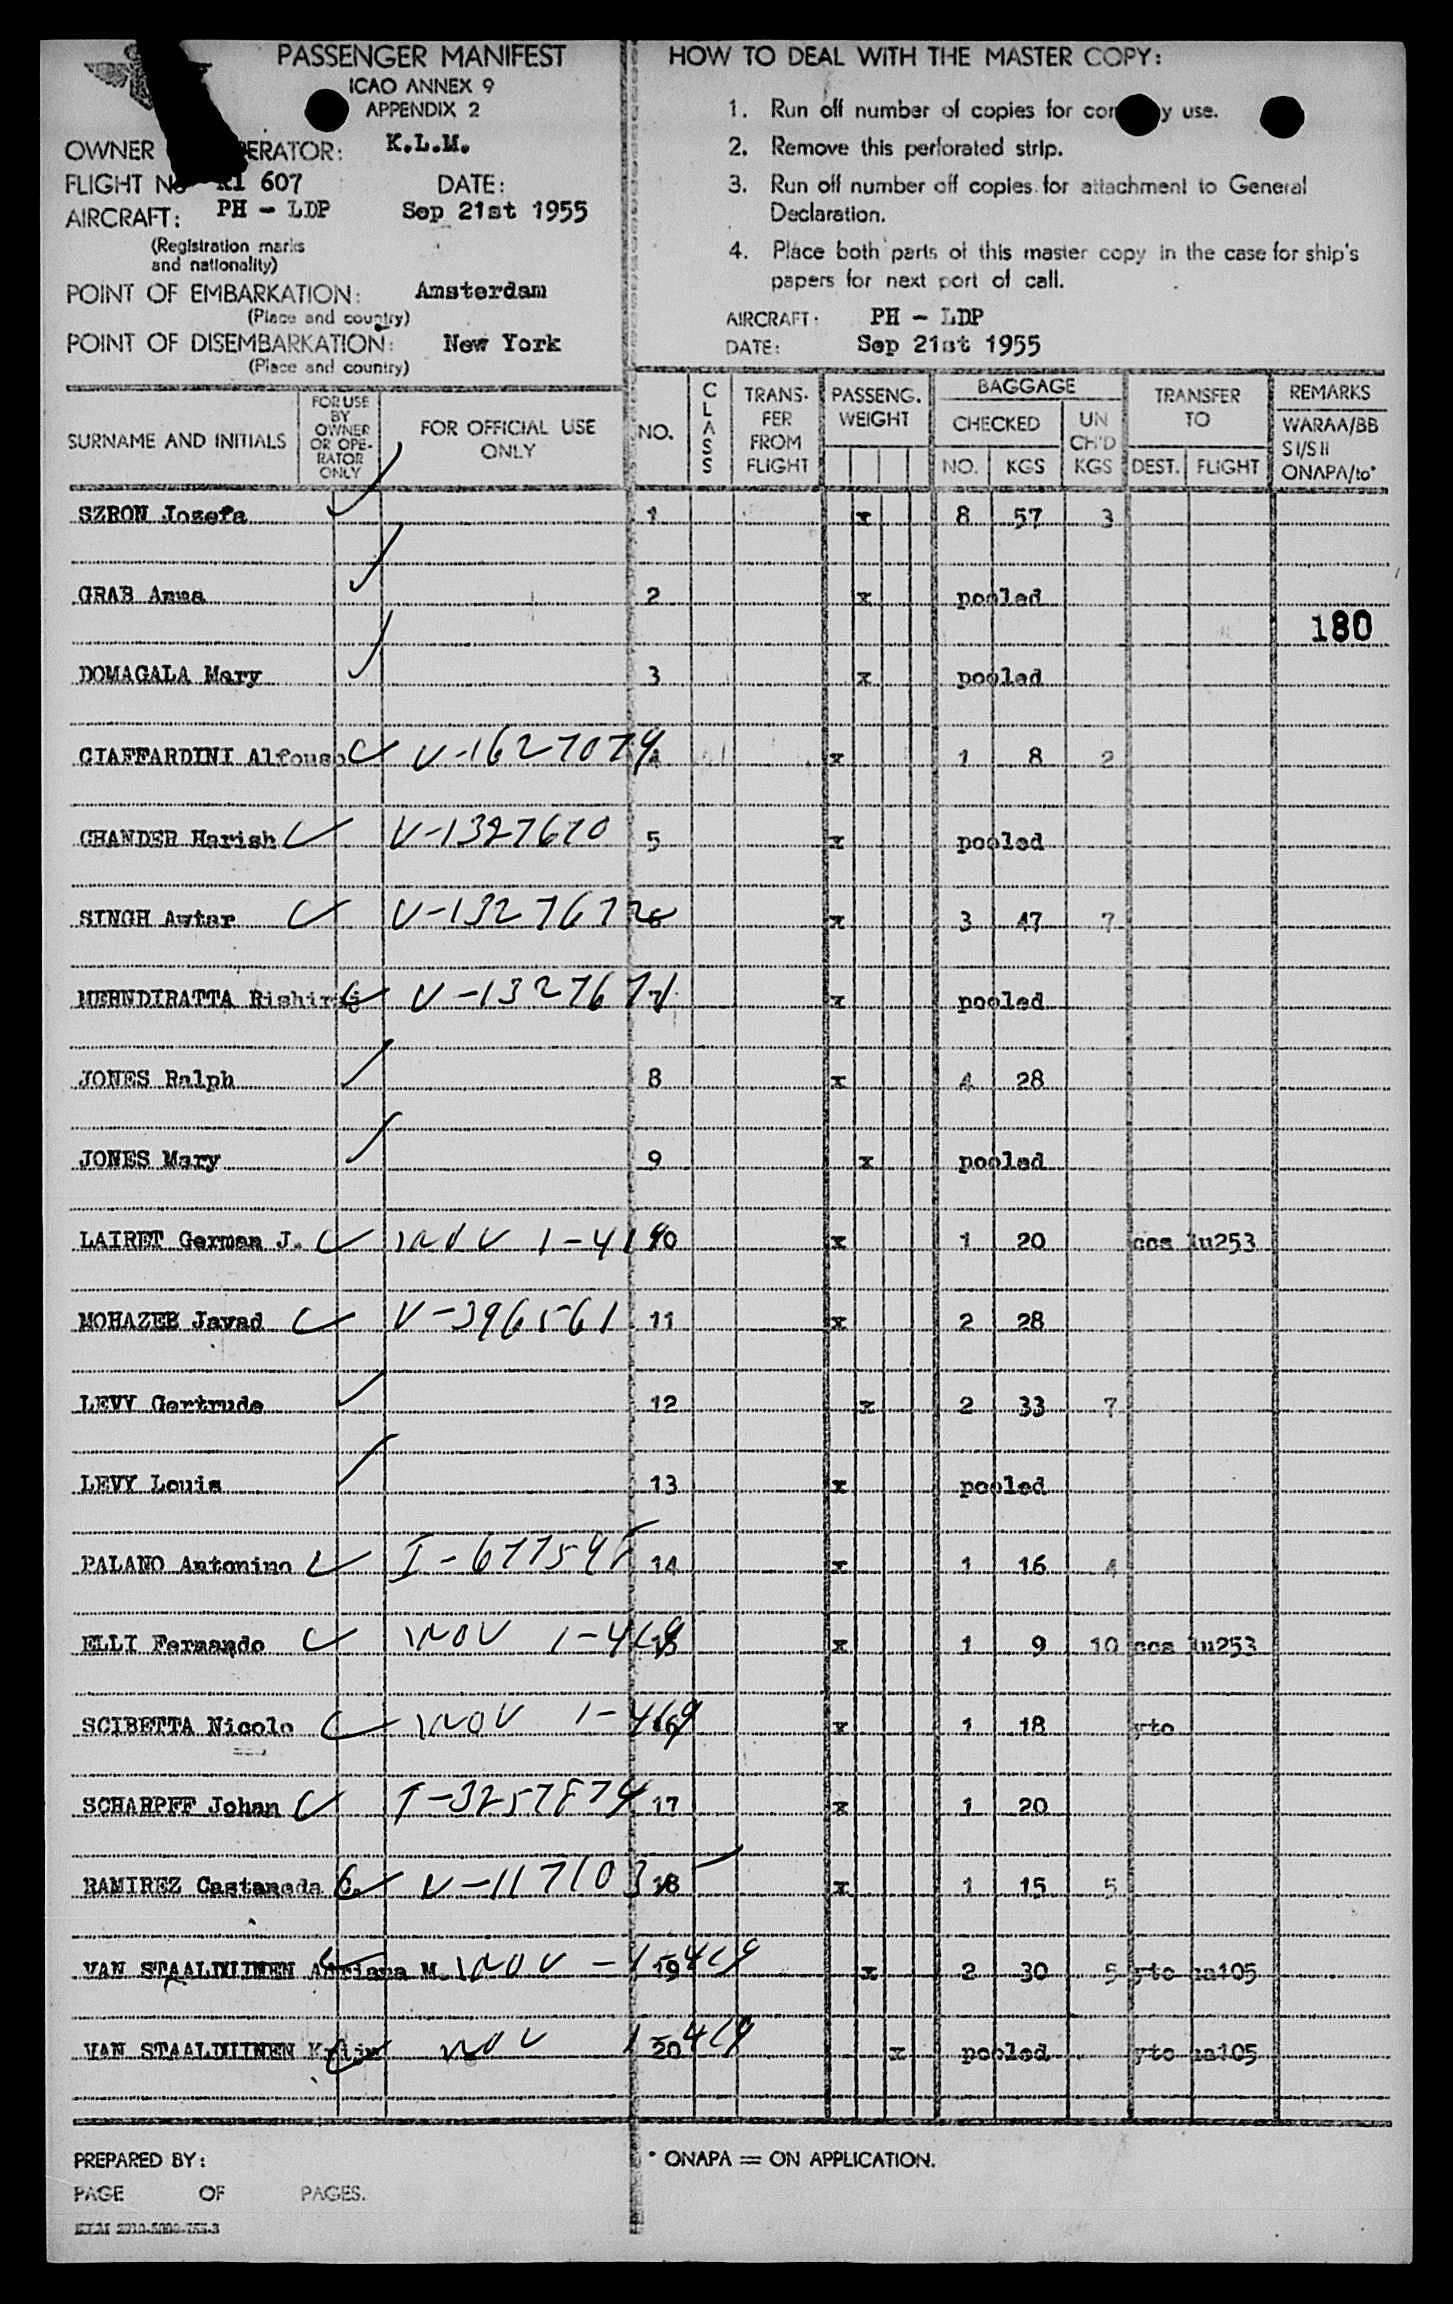 PASSENGER MANIFEST
ICAO ANNEX 9
APPENDIX 2
OWNER ERATOR: K.L.M.
FLIGHT 607 DATE:
AIRCRAFT: PH - LDP Sep 21st 1955
(Registration marks
and nationality)
POINT OF EMBARKATION: Amsterdam
(Place and country)
POINT OF DISEMBARKATION: New York
(Place and country)
HOW TO DEAL WITH THE MASTER COPY:
1. Run off number of copies for use.
2. Remove this perforated strip.
3. Run off number off copies for attachment to General
Declaration.
4. Place both parts of this master copy in the case for ship's
papers for next port of call.
AIRCRAFT: PH - LDP
DATE: Sep 21st 1955
SURNAME AND INITIALS
FOR USE
BY
OWNER
OR OPE-
RATOR
ONLY
FOR OFFICIAL USE
ONLY
NO.
CLASS
TRANS-
FER
FROM
FLIGHT
PASSENG.
WEIGHT
BAGGAGE
CHECKED
NO. KGS
UN
CH'D
KGS
TRANSFER
TO
DEST. FLIGHT
REMARKS
WARAA/BB
SI/SII
ONAPA/to*
SZRON Jozefa 1 x 8 57 3
GRAB Anna 2 x pooled
180
DOMAGALA Mary 3 x pooled
CIAFFARDINI Alfonso V-1627074 4 x 1 8 2
CHANDER Harish V-1327670 5 x pooled
SINGH Avtar V-1327672 6 x 3 47 7
MEHNDIRATTA Rishiraj V-1327671 7 x pooled
JONES Ralph 8 x 4 28
JONES Mary 9 x pooled
LAIRET German J. 10 x 1 20 ccs lu253
MOHAZEB Javad V-396561 11 x 2 28
LEVY Gertrude 12 x 2 33 7
LEVY Louis 13 x pooled
PALANO Antonino I-677595 14 x 1 16 4
ELLI Fernando 15 x 1 9 10 ccs lu253
SCIBETTA Nicolo 16 x 1 18 yto
SCHARPFF Johan 17 x 1 20
RAMIREZ Castaneda C. V-117103 18 x 1 15 5
VAN STAALDUINEN Adriana M. 19 x 2 30 5 yto 105
VAN STAALDUINEN 20 x pooled yto 105
PREPARED BY:
PAGE OF PAGES.
* ONAPA = ON APPLICATION.